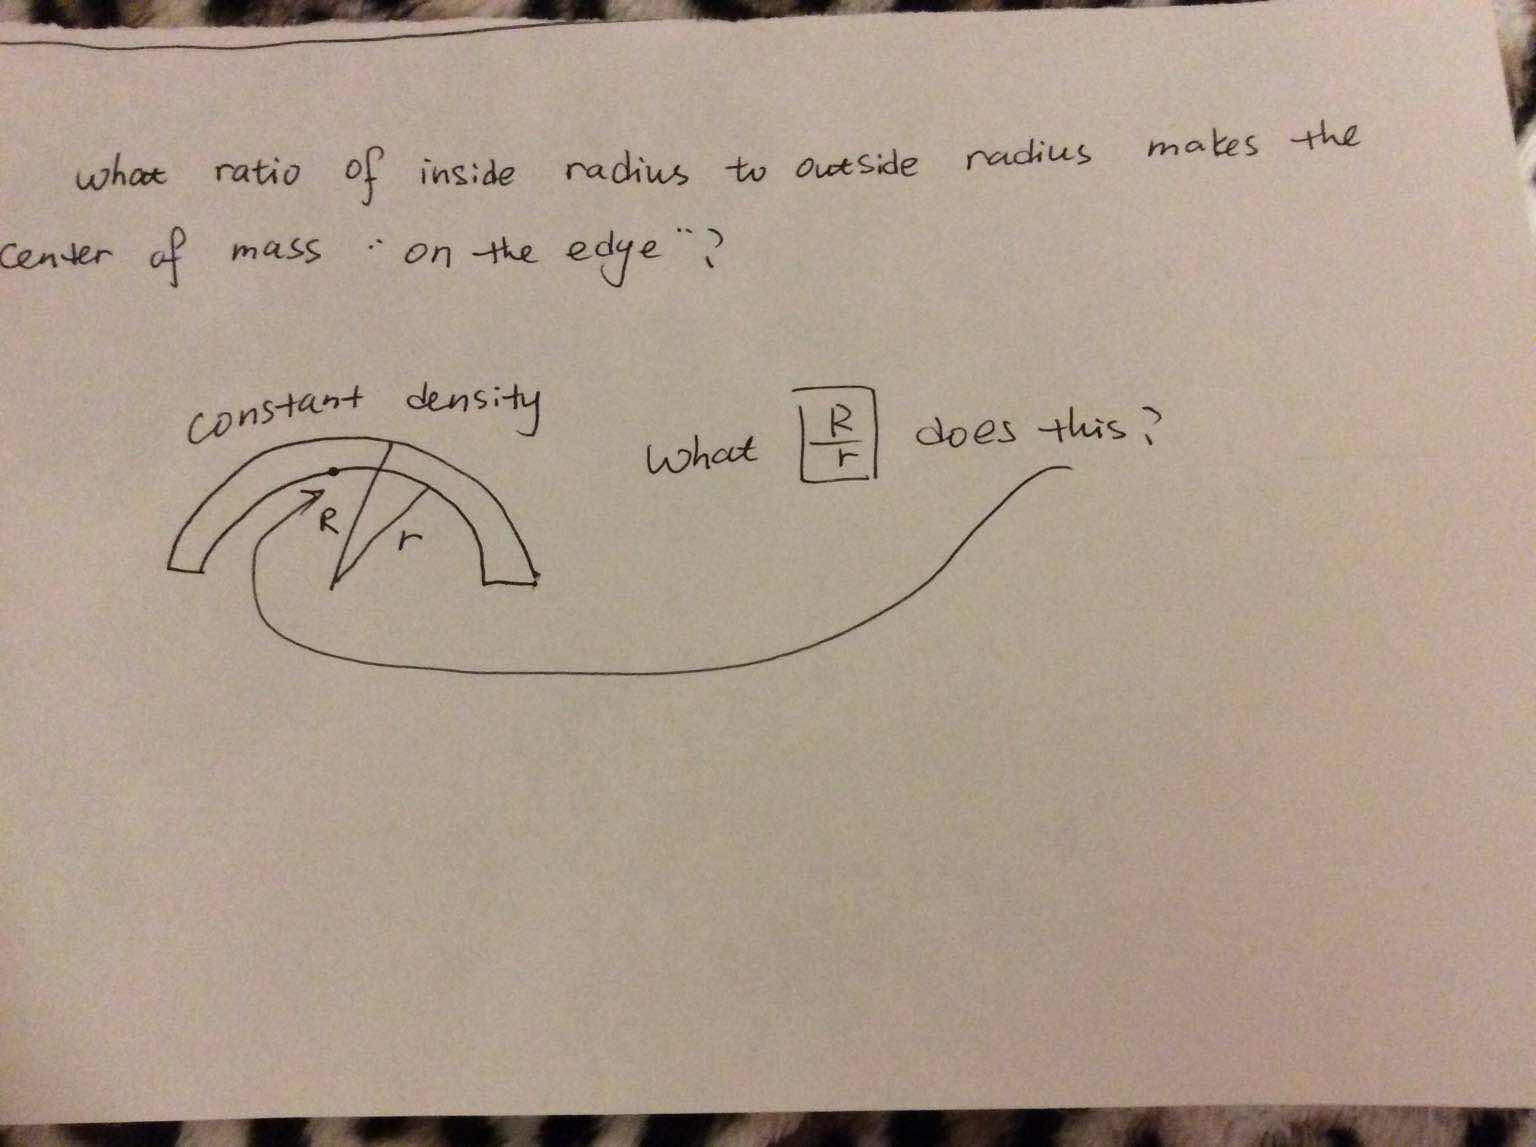 what ratio of inside radius to outside radius makes the
center of mass "on the edge"?
constant density
What R/r does this?
R
r